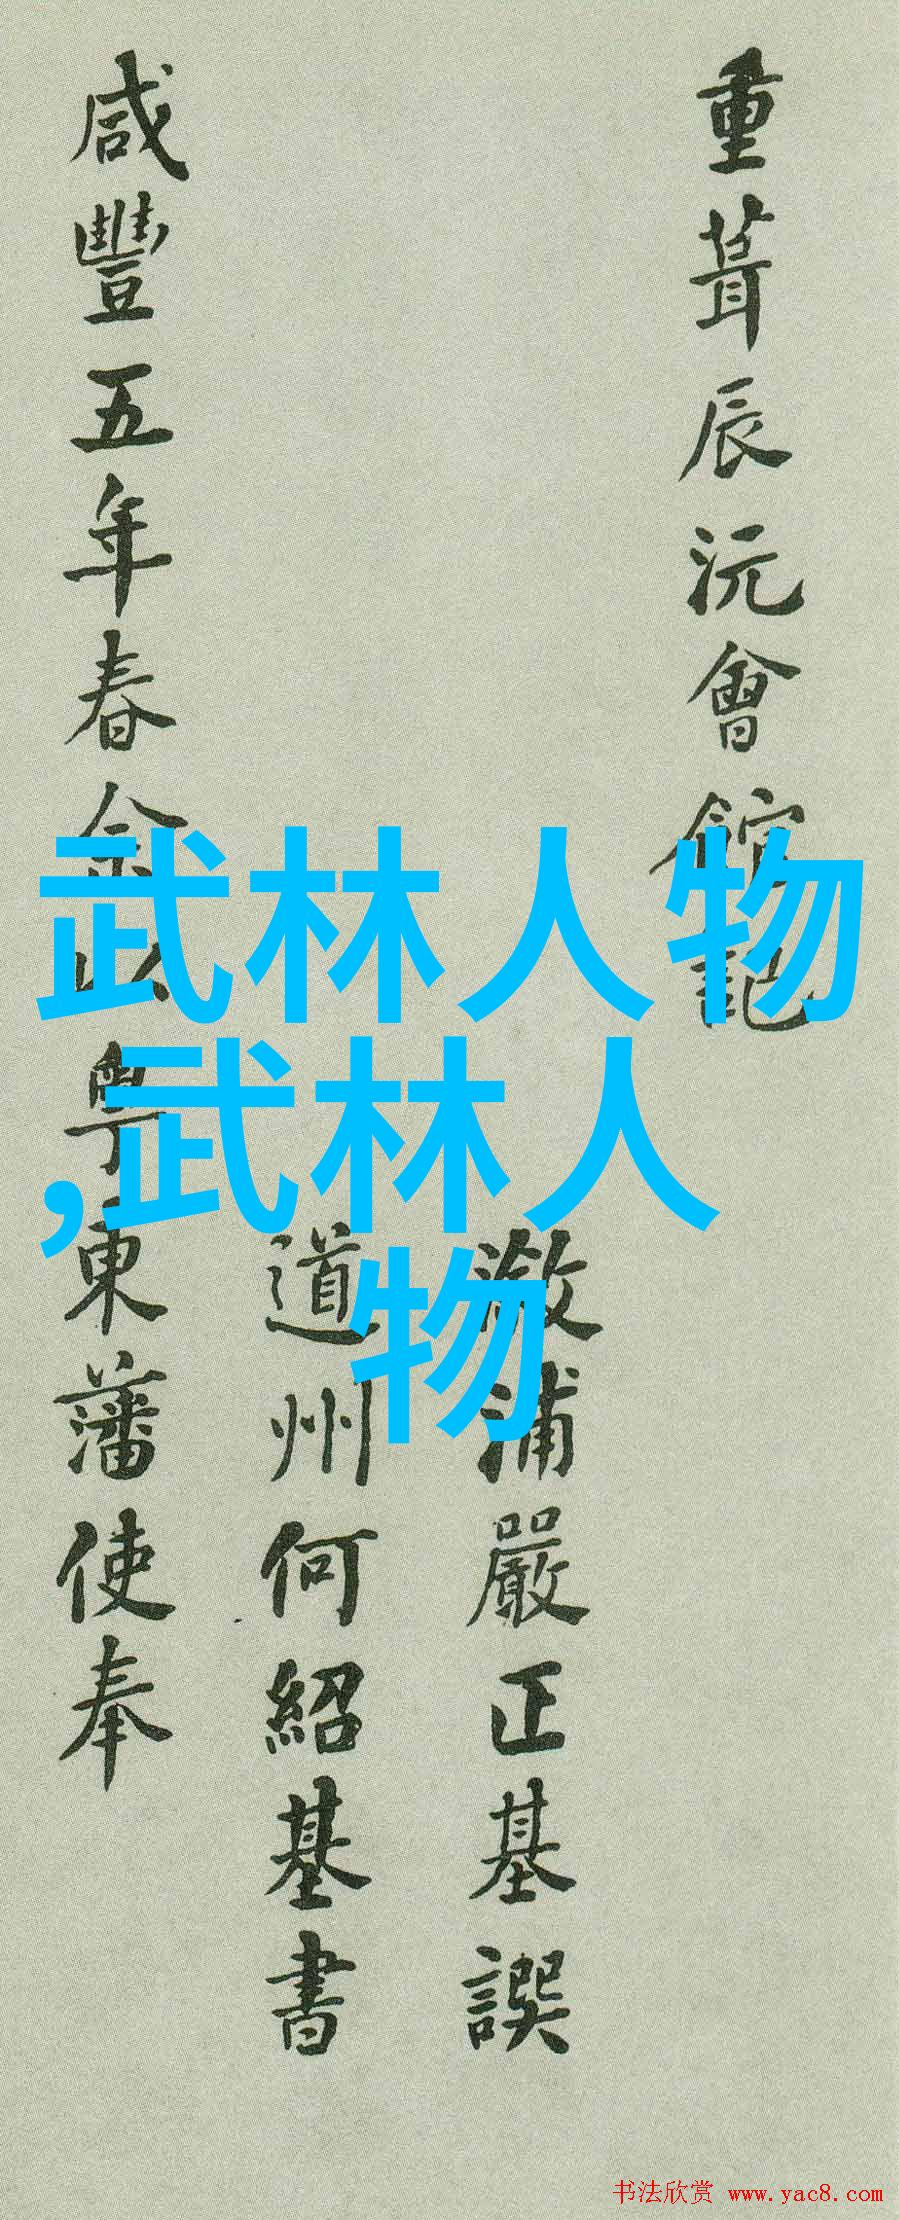 重葺辰沅會館記
溆浦嚴正基譔
道州何紹基書
咸豐五年春余以粵東藩使奉
武林人物
,武林人
物
书法欣赏 www.yac8.com